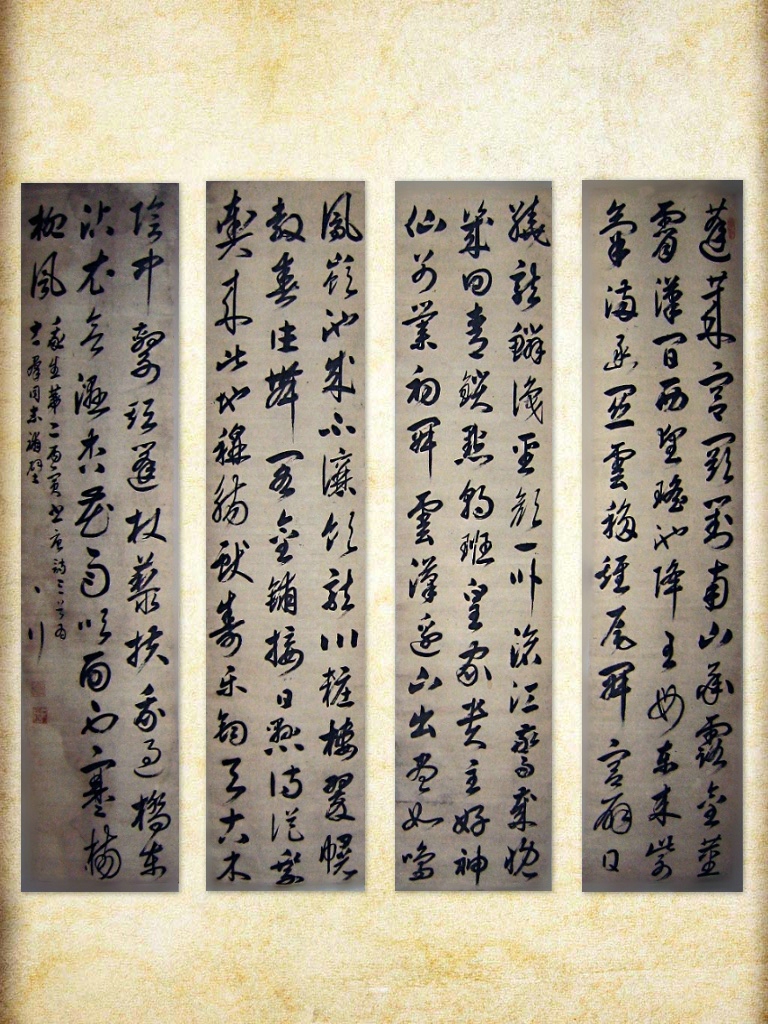 蓬萊宮闕對南山承露金莖
霄漢間西望瑤池降王母東來紫
氣滿函關雲移雉尾開宮扇日
繞龍鱗識聖顏一臥滄江驚歲晚
幾回青鎖點朝班皇家貴主好神
仙別業初開雲漢邊山出盡如鳴
鳳嶺池成不讓飲龍川粧樓翠幌
教春住舞閣金鋪接日懸侍從乘
輿來此地稱觴獻壽樂鈞天古木
陰中繫短蓬杖藜扶我過橋東
沾衣欲濕杏花雨吹面不寒楊
柳風
書唐詩三首為
補壁